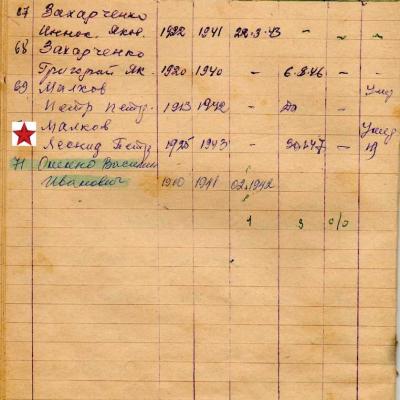 67 Захарченко
Иннок. Яков. 1922 1941 22.3.43 - - -
68 Захарченко
Григорий Як. 1920 1940 - 6.8.46 -
69 Малков
Петр Петр. 1913 1942 -
Малков
Леонид Петр. 1925 1943 - 30.1.47 -
71 Василий
Иванович 1910 1941 02.1942
1 3 с/о